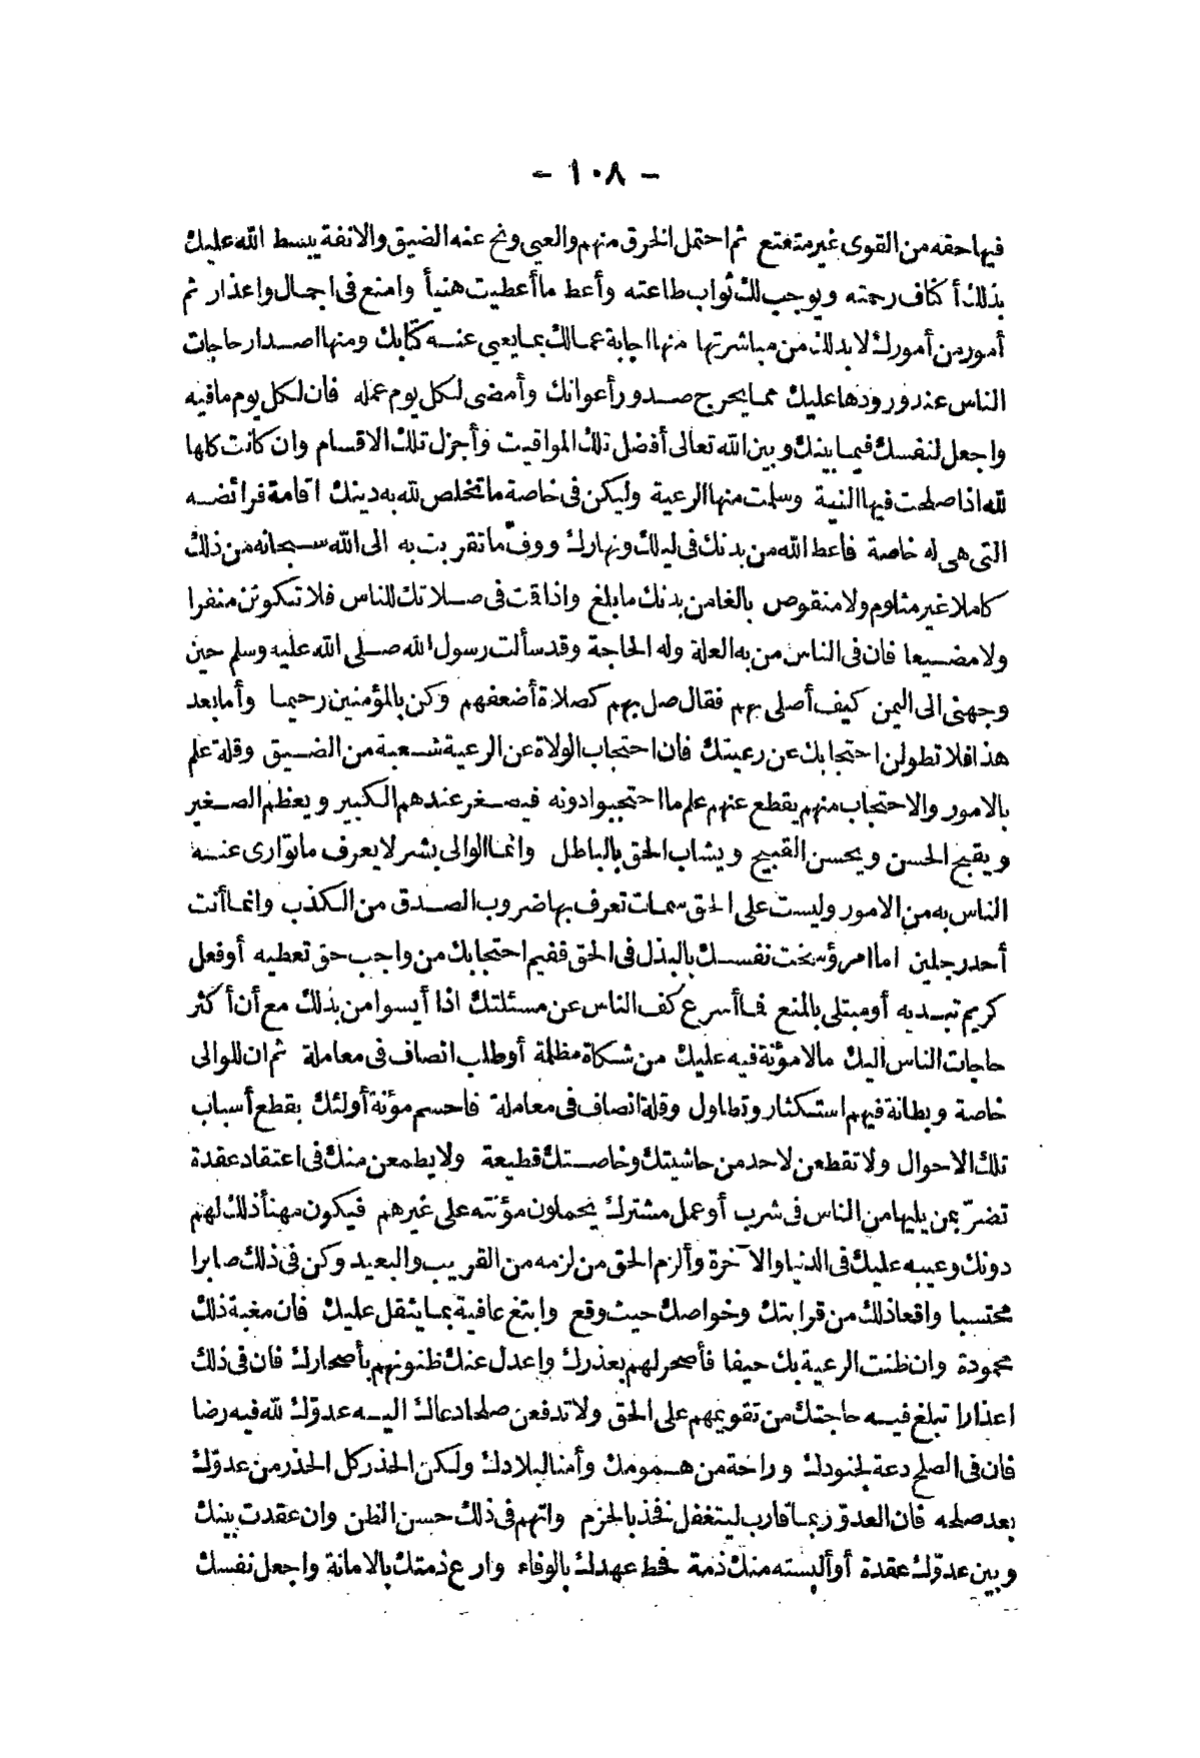 - ١٠٨ -
فيها حقه من القوى غير متعتع ثم احتمل الخرق منهم والعي ونح عنه الضيق والانفة يبسط الله عليك
بذلك أكناف رحمته ويوجب لك ثواب طاعته وأعط ما أعطيت هنيأ وامنع فى اجمال واعذار ثم
أمور من أمورك لا بد لك من مباشرتها منها اجابة عمالك بما يعيى عنه كتابك ومنها اصدار حاجات
الناس عند ورودها عليك مما يحرج صدور أعوانك وأمضى لكل يوم عمله فان لكل يوم ما فيه
واجعل لنفسك فيما بينك وبين الله تعالى أفضل تلك المواقيت وأجزل تلك الاقسام وان كانت كلها
لله اذا صلحت فيها النية وسلمت منها الرعية وليكن فى خاصة ما تخلص لله به دينك اقامة فرائضه
التى هى له خاصة فاعط الله من بدنك فى ليلك ونهارك ووف ما تقربت به الى الله سبحانه من ذلك
كاملا غير مثلوم ولا منقوص بالغا من بدنك ما بلغ واذا قت فى صلاتك للناس فلا تكونن منفرا
ولا مضيعا فان فى الناس من به العلة وله الحاجة وقد سألت رسول الله صلى الله عليه وسلم حين
وجهنى الى اليمن كيف أصلى بهم فقال صل بهم كصلاة أضعفهم وكن بالمؤمنين رحيما وأما بعد
هذا فلا تطولن احتجابك عن رعيتك فان احتجاب الولاة عن الرعية شعبة من الضيق وقلة علم
بالامور والاحتجاب منهم يقطع عنهم علم ما احتجبوا دونه فيصغر عندهم الكبير ويعظم الصغير
ويقبح الحسن ويحسن القبيح ويشاب الحق بالباطل وانما الوالى بشر لا يعرف ما توارى عنه
الناس به من الامور وليست على الحق سمات تعرف بها ضروب الصدق من الكذب وانما أنت
أحد رجلين اما امرؤ سخت نفسك بالبذل فى الحق ففيم احتجابك من واجب حق تعطيه أو فعل
كريم تبديه أو مبتلى بالمنع فما أسرع كف الناس عن مسئلتك اذا أيسوا من بذلك مع أن أكثر
حاجات الناس اليك ما لا مؤنة فيه عليك من شكاة مظلمة أو طلب انصاف فى معاملة ثم ان للوالى
خاصة وبطانة فيهم استكثار وتطاول وقلة انصاف فى معاملة فاحسم مؤنة أولئك بقطع أسباب
تلك الاحوال ولا تقطعن لاحد من حاشيتك وخاصتك قطيعة ولا يطمعن منك فى اعتقاد عقدة
تضرّ بمن يليها من الناس فى شرب أو عمل مشترك يحملون مؤنته على غيرهم فيكون مهنأ ذلك لهم
دونك وعيبه عليك فى الدنيا والآخرة وألزم الحق من لزمه من القريب والبعيد وكن فى ذلك صابرا
محتسبا واقعا ذلك من قرابتك وخواصك حيث وقع وابتغ عافية بما يثقل عليك فان مغبة ذلك
محمودة وان ظنت الرعية بك حيفا فأصحر لهم بعذرك واعدل عنك ظنونهم بأصحارك فان فى ذلك
اعذارا تبلغ فيه حاجتك من تقويمهم على الحق ولا تدفعن صلحا دعاك اليه عدوّك لله فيه رضا
فان فى الصلح دعة لجنودك وراحة من همومك وأمنا لبلادك ولكن الحذر كل الحذر من عدوّك
بعد صلحه فان العدوّ ربما قارب ليتغفل فخذ بالحزم واتهم فى ذلك حسن الظن وان عقدت بينك
وبين عدوّك عقدة أو ألبسته منك ذمة فحط عهدك بالوفاء وارع ذمتك بالامانة واجعل نفسك